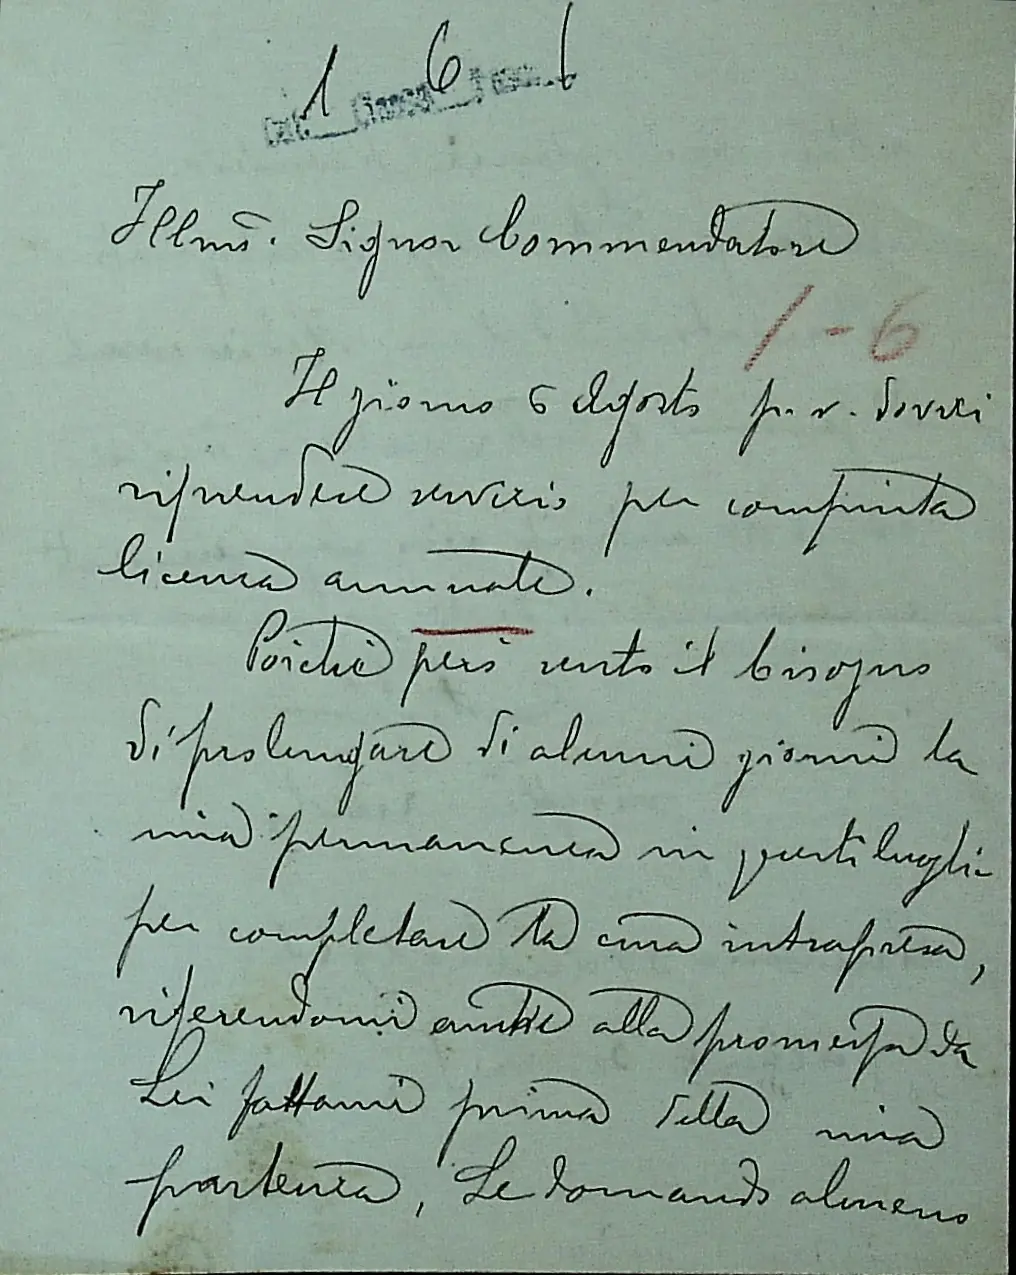 1 6 1
Illmõ. Signor Commendatore
1-6
Il giorno 6 Agosto p. v. dovrei
riprendere servizio per compiuta
licenza annuale.
Poichè però sento il bisogno
di prolungare di alcuni giorni la
mia permanenza in questi luoghi
per completare la cura intrapresa,
riferendomi anche alla promessa da
Lei fattami prima della mia
partenza, Le domando almeno